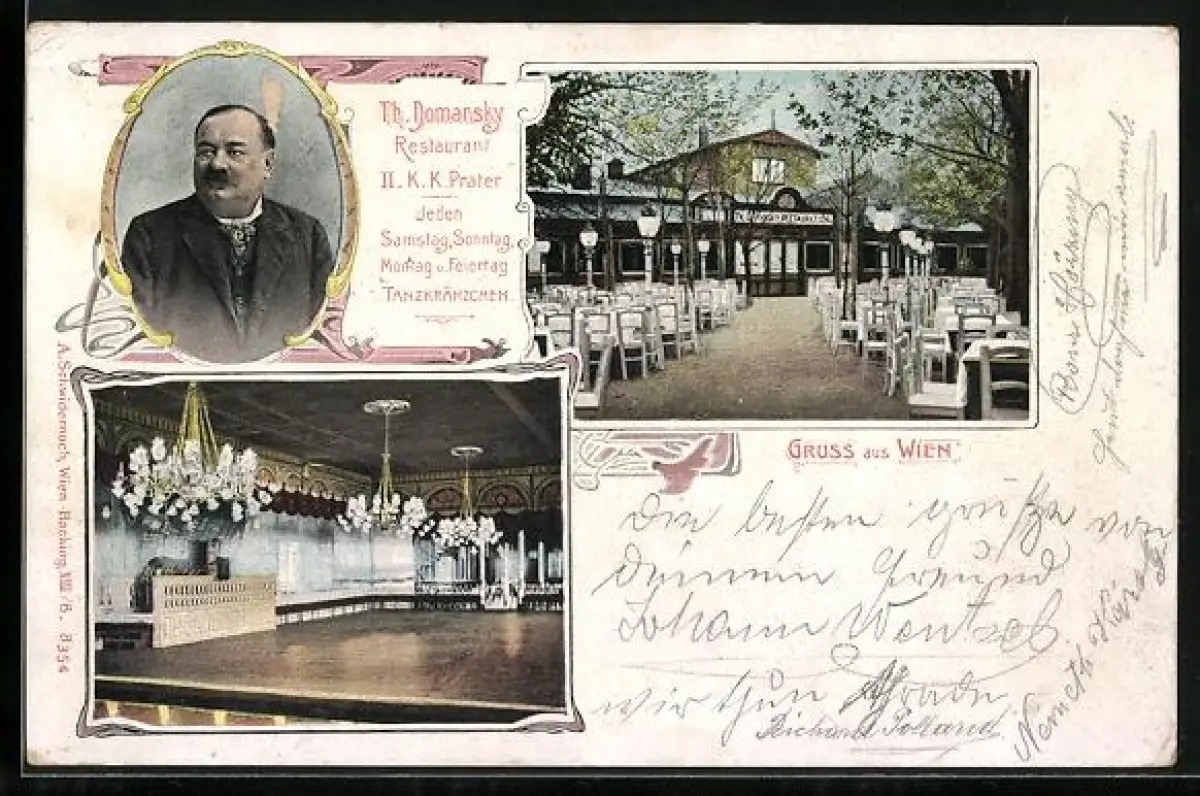 Th. Domansky
Restaurant
II. K. K. Prater
Jeden
Samstag, Sonntag,
Montag u. Feiertag
TANZKRÄNZCHEN.
GRUSS aus WIEN
A. Schwidernoch, Wien-Hacking, XIII/6. 8354
Die besten grüße von
deinem Freund
Johann Wentzel
wir thun
Richard Polland
Nemeth